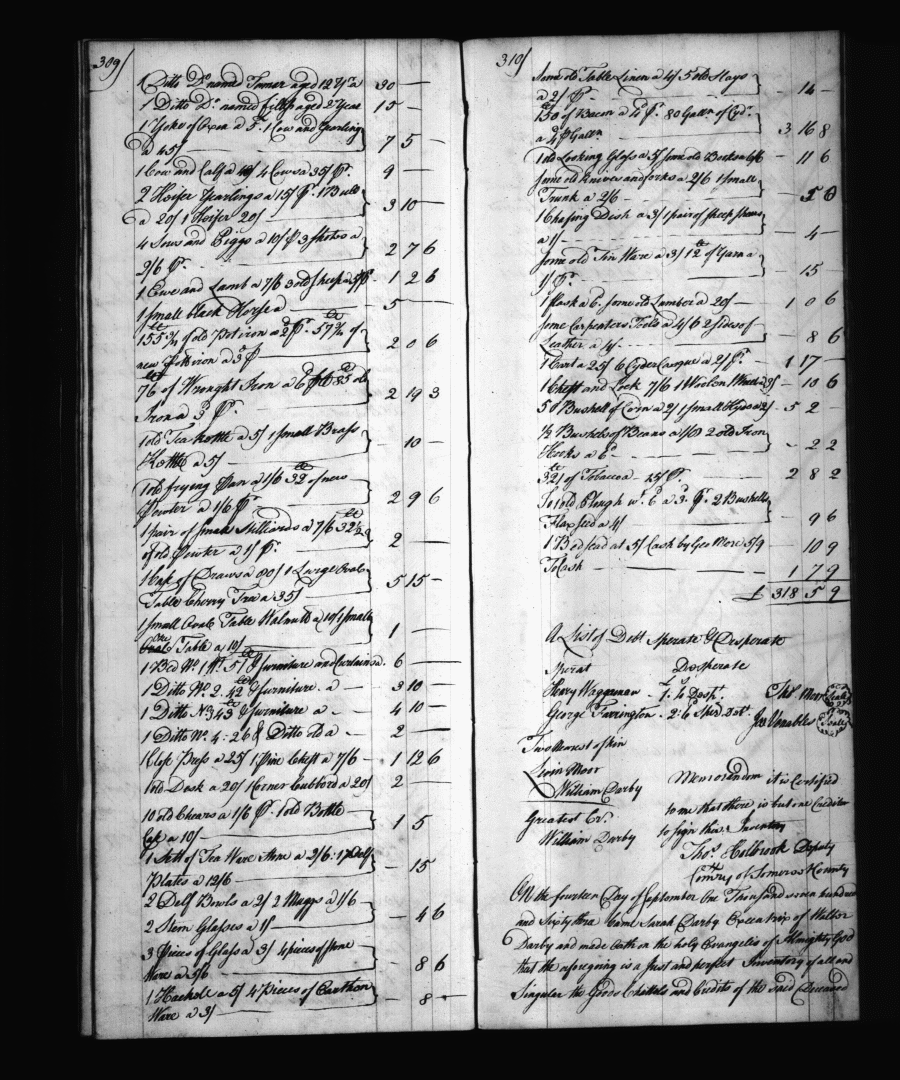 309/
1 Ditto Do named Tinner aged 12 Yrs a 30 —
1 Ditto Do named Phillip aged 2 Year 15 —
1 Yoke of Oxen a 5. 1 Cow and Yearling
a 45/ 7 5 —
1 Cow and Calf a 40/ 4 Cows a 35/ Ps. 9 —
2 Heifer Yearlings a 15/ Ps. 1 Bull
a 20/ 1 Heifer 20/ 3 10 —
4 Sows and Piggs a 10/ P 3 Shotes a
2/6 Ps. 2 7 6
1 Ewe and Lamb a 7/6 3 old Sheep a 5/ Ps 1 2 6
1 Small black Horse a 5 —
155 3/4 of old Potiron a 2d P. 57 3/4 of
new Pottiron a 3d P 2 0 6
76 of Wrought Iron a 6d 85 old
Iron a 3 P. 2 19 3
1 old Tea Kettle a 5/ 1 Small Brass
Kettle a 5/ 10 —
1 old frying Pan a 1/6 32 of new
Pewter a 1/6 P. 2 9 6
1 pair of Small Stilliards a 7/6 32 1/2
of old Pewter a 1/ P. 2 —
1 Case of Draws a 80/ 1 Large Oval
Table Cherry Tree a 35/ 5 15 —
1 Small Oval Table Walnut a 10/ 1 Small
Table a 10/ 1 —
1 Bed No. 1 Wt. 51 & furniture and Curtains a. 6 —
1 Ditto No. 2. 42 & furniture. a — 3 10 —
1 Ditto No 3 43 & furniture a — 4 10 —
1 Ditto No. 4: 26 & Ditto old a — 2 —
1 Close Press a 25/ 1 Pine Chest a 7/6 — 1 12 6
1 old Desk a 20/ 1 Corner Cubbord a 20/ 2 —
10 old Chears a 1/6 P. 1 old Bottle
Case a 10/ 1 5
1 Sett of Tea Ware Stone a 2/6. 17 Delf
Plates a 12/6 — 15
2 Delf Bowls a 2/ 2 Muggs a 1/6
2 Stem Glasses a 1/ — 4 6
3 Pieces of Glass a 3/ 4 pieces of Stone
Ware a 5/6 8 6
1 Hackele a 5/ 4 Pieces of Earthen
Ware a 3/ — 8 -
310/
Some old Table Linen a 4/ 5 old Stays
a 2/ P. — 14 —
150 of Bacon a 4d P. 80 Galln of Cydr.
a 4d P Galln 3 16 8
1 old Looking Glass a 5/ Some old Books a 6/6 — 11 6
Some old knives and forks a 2/6 1 Small
Trunk a 2/6 — 5 0
1 Chafing Dish a 3/ 1 pair of Sheep Shears
a 1/ — 4 —
Some old Tin Ware a 3/ 12 of Yarn a
1/ P. — 15 —
1 flask a 6. Some old Lumber a 20/ — 1 0 6
Some Carpenters Tools a 4/6 2 sides of
Leather a 4/. 8 6
1 Cart a 25/ 6 Cyder Casque a 2/ P. — 1 17 —
1 Chest and Lock 7/6 1 Woolen Wheel a 3/ — 10 6
50 Bushell of Corn a 2/ 1 Small Hyde a 2/ - 5 2 —
1/2 Bushels of Beans a 1/8 2 old Iron
Hooks a 6d — 2 2
321 of Tobacco a 15/ P. 2 8 2
To 1 old Plough wt. 6 a 3. P. 2 Bushells
Flax seed a 4/ 9 6
1 Bedstead at 5/ Cash by Geo More 5/9 — 10 9
To Cash — 1 7 9
£ 318 5 9
A List of Debt Sperate & Desperate
Sperat Desperate
Henry Waggaman — 1. 10 Despt.
George Farrington - 2. 6 Sper Dot.
Thos. Moor Seal
Jos Venables Seal
Two Nearest of kin
Livin Moor
William Darby
Greatest Cr.
William Darby
Memorandum it is Certified
to me that there is but one Creditor
to sign this Inventory
Thos. Holbrook Deputy
Comry of Somerset County
On the fourteen Day of September One Thousand seven hundred
and Sixty three Came Sarah Darby Executrix of Walter
Darby and made Oath on the holy Evangelis of Almighty God
that the aforegoing is a Just and perfect Inventory of all and
Singular the Goods Chattels and Credits of the said Deceased